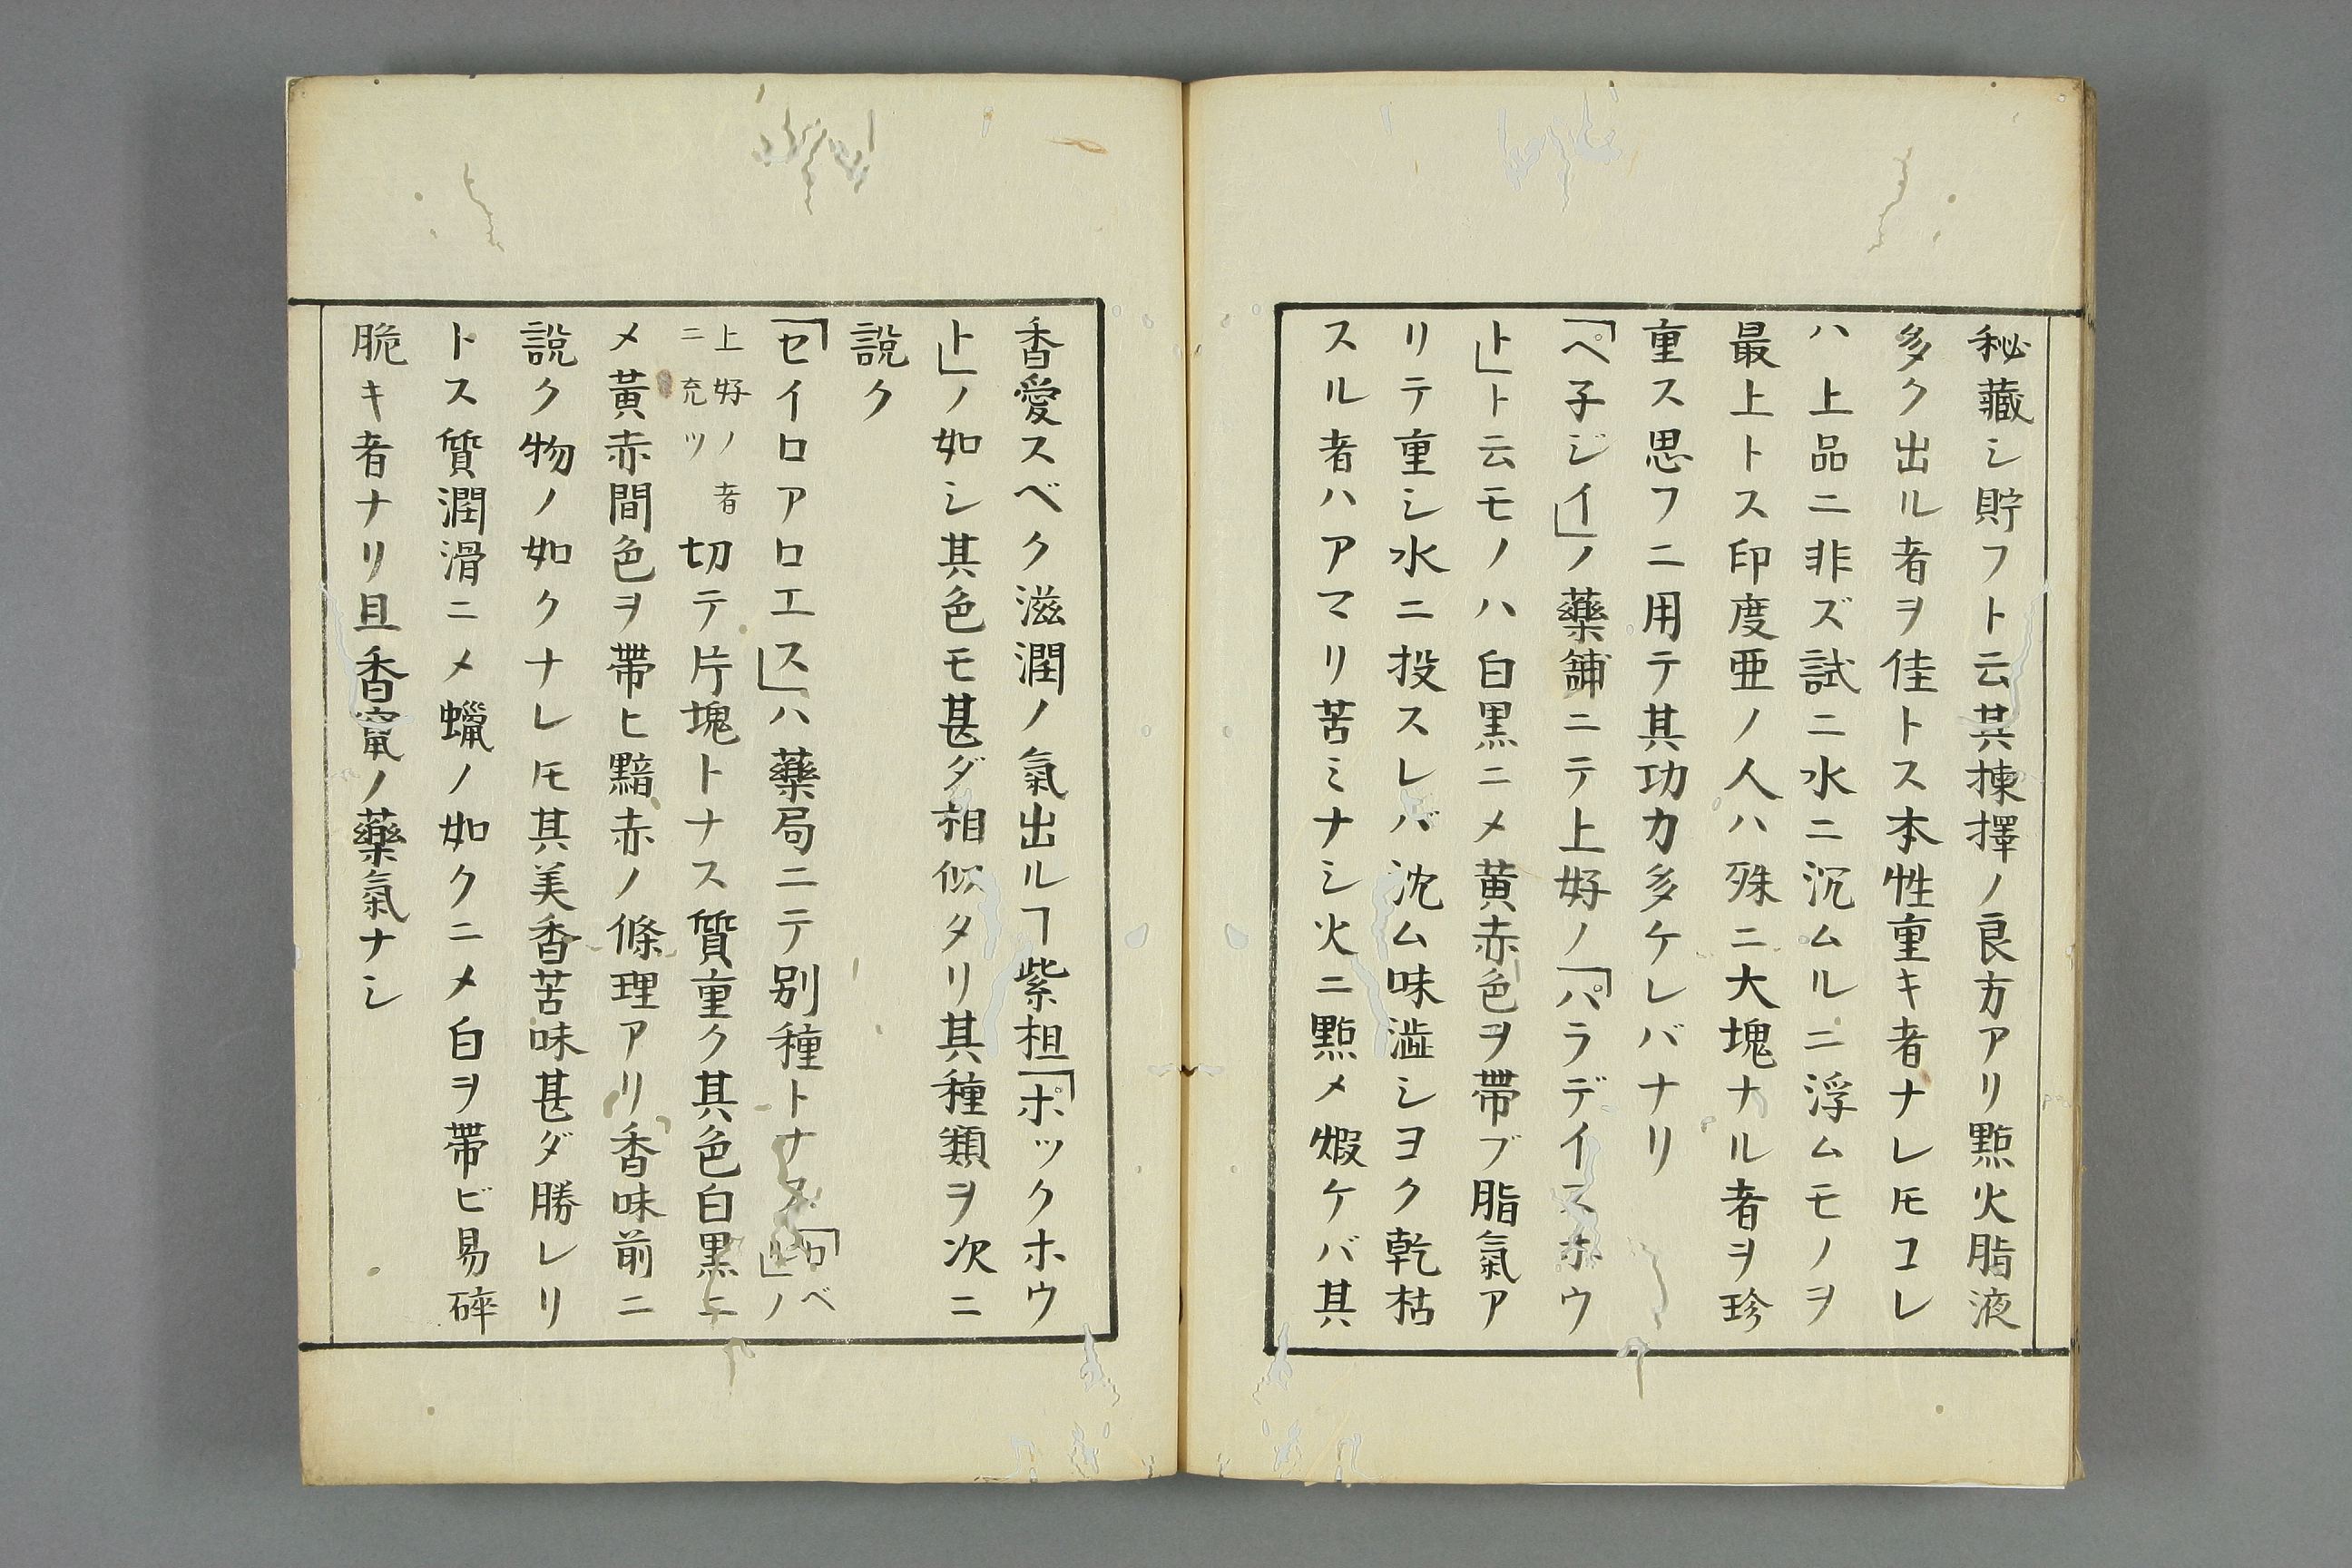 秘藏シ貯フト云其揀擇ノ良方アリ㸃火脂液
多ク出ル者ヲ佳トス本性重キ者ナレ𪜈コレ
ハ上品ニ非ズ試ニ水ニ沉ムルニ浮ムモノヲ
最上トス印度亜ノ人ハ殊ニ大塊ナル者ヲ珍
重ス思フニ用テ其功力多ケレバナリ
「ペ子ジイ」ノ藥舖ニテ上好ノ「パラデイスホウ
ト」ト云モノハ白黒ニメ黄赤色ヲ帶ブ脂氣ア
リテ重シ水ニ投スレバ沈ム味澁シヨク乾枯
スル者ハアマリ苦ミナシ火ニ㸃メ煆ケバ其
香愛スベク滋潤ノ氣出ルヿ紫柦「ポックホウ
ト」ノ如シ其色モ甚ダ相似タリ其種類ヲ次ニ
説ク
「セイロアロエス」ハ藥局ニテ別種トナス「ロベ
ル」ノ
上好ノ者
ニ充ツ
切テ片塊トナス質重ク其色白黒ニ
メ黃赤間色ヲ帶ヒ黯赤ノ條理アリ香味前ニ
説ク物ノ如クナレ𪜈其美香苦味甚ダ勝レリ
トス質潤滑ニメ蠟ノ如クニメ白ヲ帶ビ易碎
脆キ者ナリ且香竄ノ藥氣ナシ